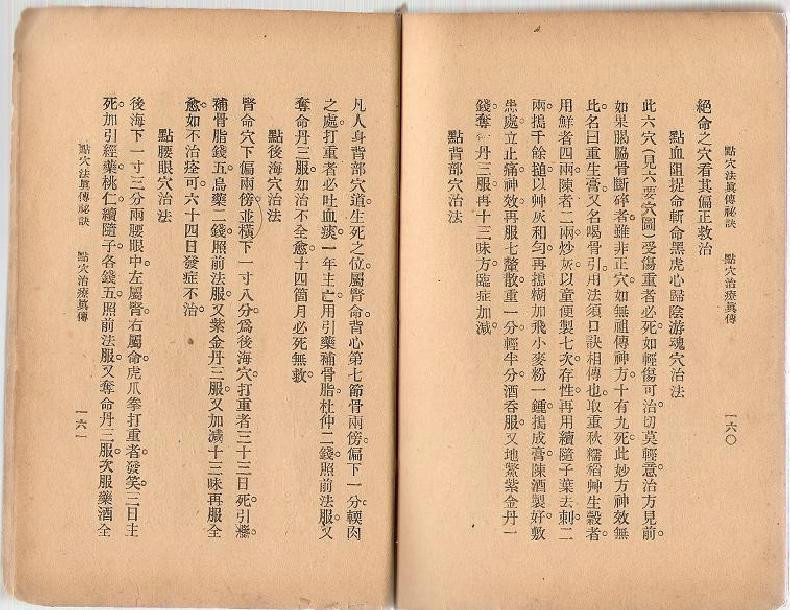 點穴法眞傳祕訣　點穴治療眞傳　一六〇
絕命之穴看其偏正救治
點血阻捉命斬命黑虎心歸陰游魂穴治法
此六穴（見六要穴圖）受傷重者必死如輕傷可治切莫輕意治方見前。
如果腸脇骨斷碎者。雖非正穴。如無祖傳神方十有九死。此妙方神效無
此。名曰重生膏。又名喝骨引。用法須口訣相傳也。取重秋糯稻艸生穀者。
用鮮者四兩。陳者二兩。炒灰以童便製七次存性。再用續隨子葉去刺二
兩。搗千餘搥。以艸灰和勻。再搗糊加飛小麥粉一鍾。搗成膏。陳酒製好敷
患處。立止痛神效。再服七釐散。重一分。輕半分。酒吞服。又地鱉紫金丹一
錢。奪　丹三服。再十三味方。臨症加減。
點背部穴治法
凡人身背部穴道。生死之位。屬腎命。背心第七節骨兩傍。偏下一分。輭肉
之處。打重者必吐血痰。一年主亡。用引藥補骨脂。杜仲二錢。照前法服。又
奪命丹三服。如治不全愈。十四箇月必死無救。
點後海穴治法
腎命穴下偏兩傍。並橫下一寸八分。爲後海穴。打重者三十三日死。引藥。
補骨脂錢五。烏藥二錢。照前法服。又紫金丹三服。又加減十三味再服全
愈。如不治痊。可六十四日發症不治。
點腰眼穴治法
後海下一寸三分。兩腰眼中。左屬腎。右屬命。虎爪拳打重者發笑。三日主
死。加引經藥。桃仁。續隨子。各錢五。照前法服。又奪命丹三服。次服藥酒全
點穴法眞傳祕訣　點穴治療眞傳　一六一